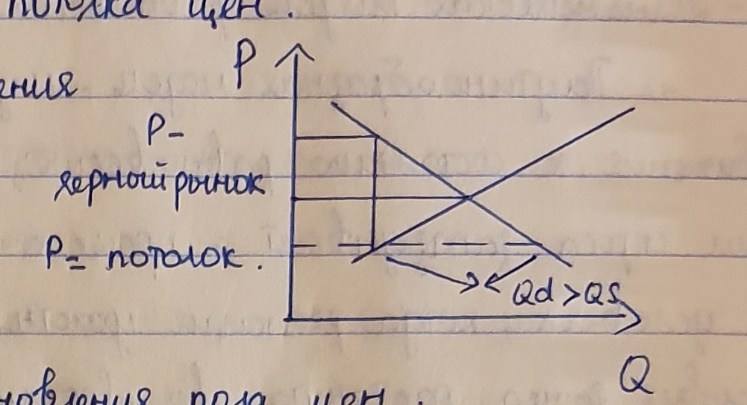 потолка цен.
P
ения
P-
черный рынок
P= потолок.
Qd>QS
Q
новления пола цен.